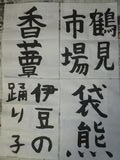 鶴見
市場
香蕈
袋熊
伊豆の
踊り子